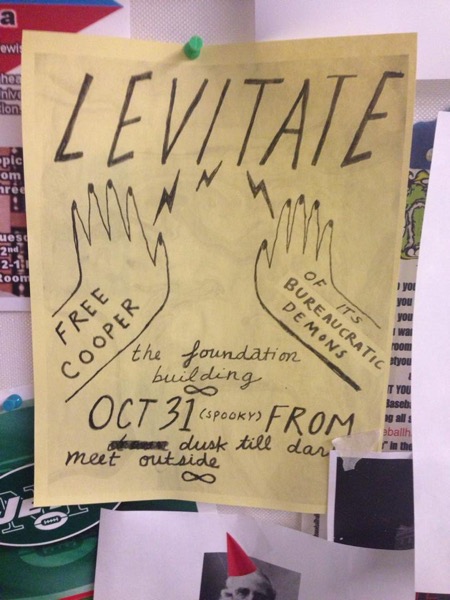 LEVITATE
FREE
COOPER
OF ITS
BUREAUCRATIC
DEMONS
the foundation
building
OCT 31 (SPOOKY) FROM
dusk till dar
meet outside
a
ewis
2nd
2-1
Room
you
you
you
wa
room
etyou
IT YOU
Baseba
g all s
eballh
" in the
JE
N